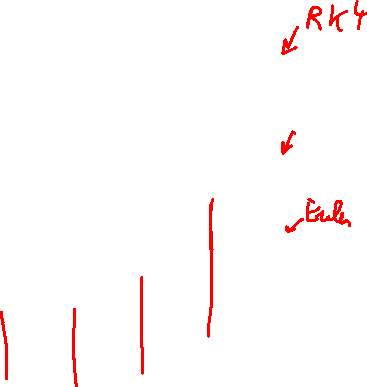 RK4
Euler